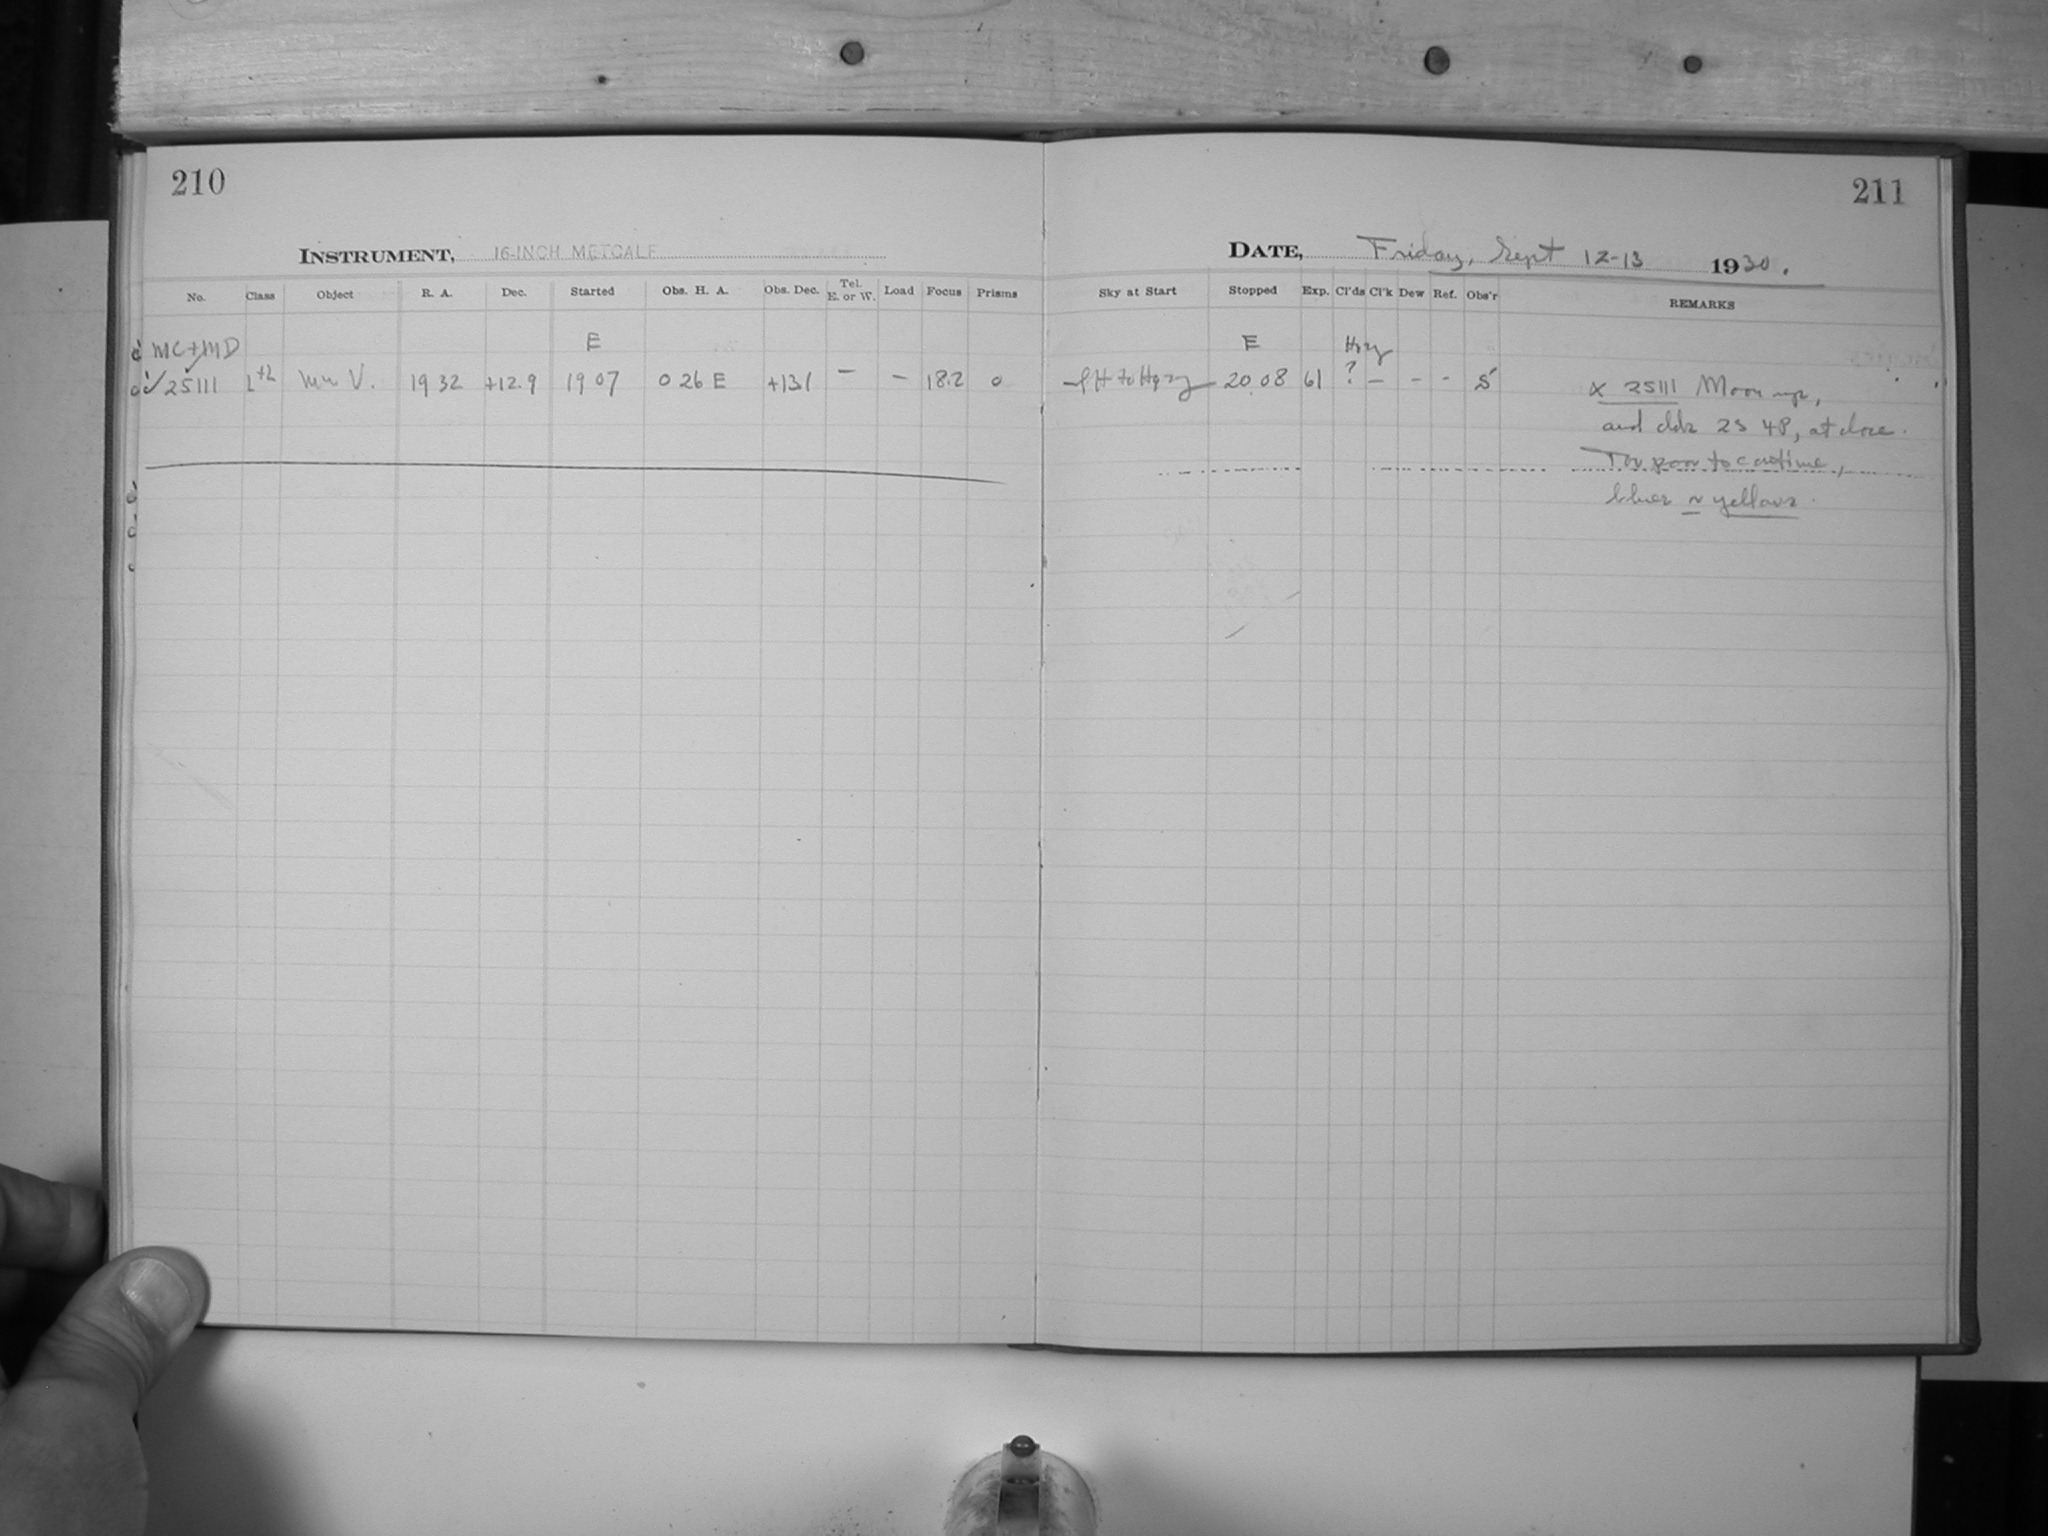 210
INSTRUMENT, 16-INCH METCALF
No. Class Object R. A. Dec. Started Obs. H. A. Obs. Dec. Tel. E. or W. Load Focus Prisms
MC+MD E
✓25111 L th V. 19 32 +12.9 19 07 0 26 E +13.1 – – 18.2 0
211
DATE, Friday, Sept 12-13 1930.
Sky at Start Stopped Exp. Cl'ds Cl'k Dew Ref. Obs'r REMARKS
E Hzy
to 20 08 61 ? – – - S
x 25111 Moon up,
and 25 48, at close.
Too poor to continue,
blues or yellows.